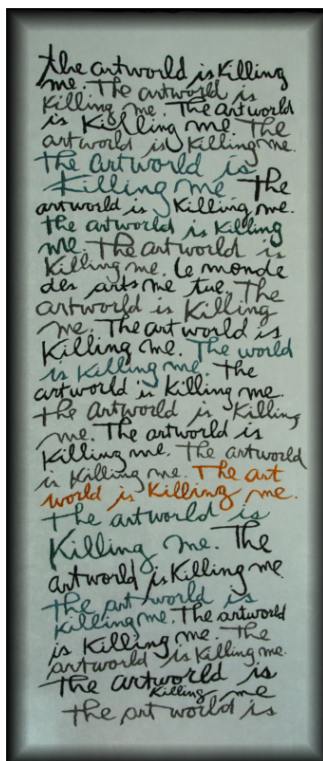 the artworld is Killing
me. The artworld is
Killing me. The artworld
is Killing me. The
artworld is Killing me.
The artworld is
Killing me The
artworld is Killing me.
the artworld is Killing
me. The artworld is
Killing me. Le monde
des arts me tue. The
artworld is Killing
me. The art world is
Killing me. The world
is Killing me. The
artworld is Killing me.
the artworld is Killing
me. The artworld is
Killing me. The artworld
is Killing me. The art
world is Killing me.
The artworld is
Killing me. The
artworld is Killing me
The art world is
Killing me. The artworld
is Killing me. The
artworld is Killing me.
The artworld is
Killing me
the art world is